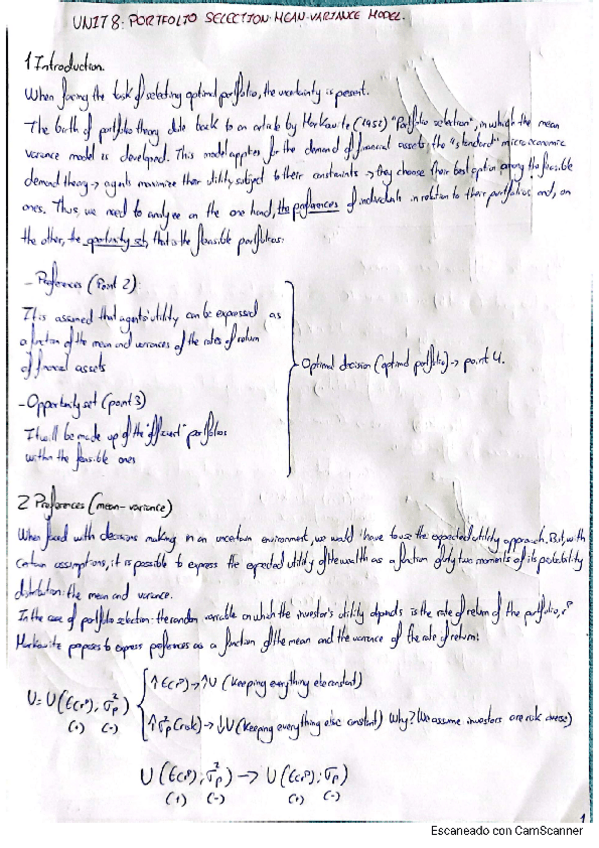 UNIT 8: PORTFOLIO SELECTION: MEAN-VARIANCE MODEL.
1 Introduction.
When facing the task of selecting optimal portfolio, the uncertainty is present.
The birth of portfolio theory date back to an article by Markowitz (1952) "Portfolio selection", in which the mean
variance model is developed. This model applies for the demand of financial assets the "standard" microeconomic
demand theory → agents maximize their utility subject to their constraints → they choose their best option among the feasible
ones. Thus, we need to analyse on the one hand, the preferences of individuals in relation to their portfolios and, on
the other, the opportunity set, that is the feasible portfolios:
- Preferences (Point 2):
It is assumed that agents' utility can be expressed as
a function of the mean and variances of the rates of return
of financial assets
- Opportunity set (point 3)
It will be made up of the "efficient" portfolios
within the feasible ones
Optimal decision (optimal portfolio) → point 4.
2 Preferences (mean-variance)
When faced with decisions making in an uncertain environment, we would have to use the expected utility approach. But, with
certain assumptions, it is possible to express the expected utility of the wealth as a function of only two moments of its probability
distribution: the mean and variance.
In the case of portfolio selection: the random variable on which the investor's utility depends is the rate of return of the portfolio, rᵖ
Markowitz proposes to express preferences as a function of the mean and the variance of the rate of return:
U = U(E(rᵖ); σ²ₚ)
(+) (-)
↑E(rᵖ) → ↑U (Keeping everything else constant)
↑σ²ₚ (risk) → ↓U (Keeping everything else constant) Why? (We assume investors are risk averse)
U(E(rᵖ); σ²ₚ) → U(E(rᵖ); σₚ)
(+) (-) (+) (-)
1
Escaneado con CamScanner